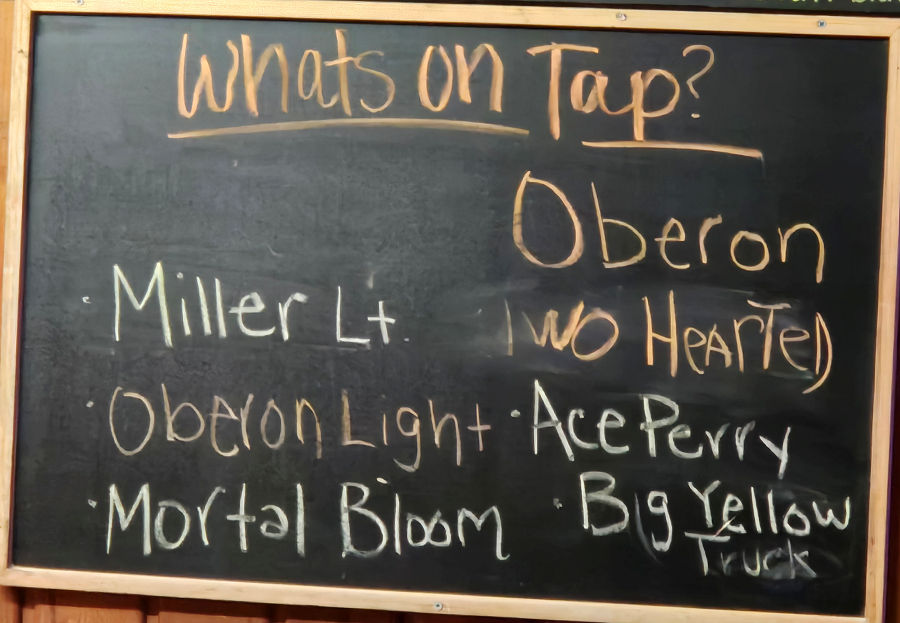 Whats on Tap?
Oberon
· Miller Lt.
Two Hearted
· Oberon Light
· Ace Perry
· Mortal Bloom
· Big Yellow
Truck